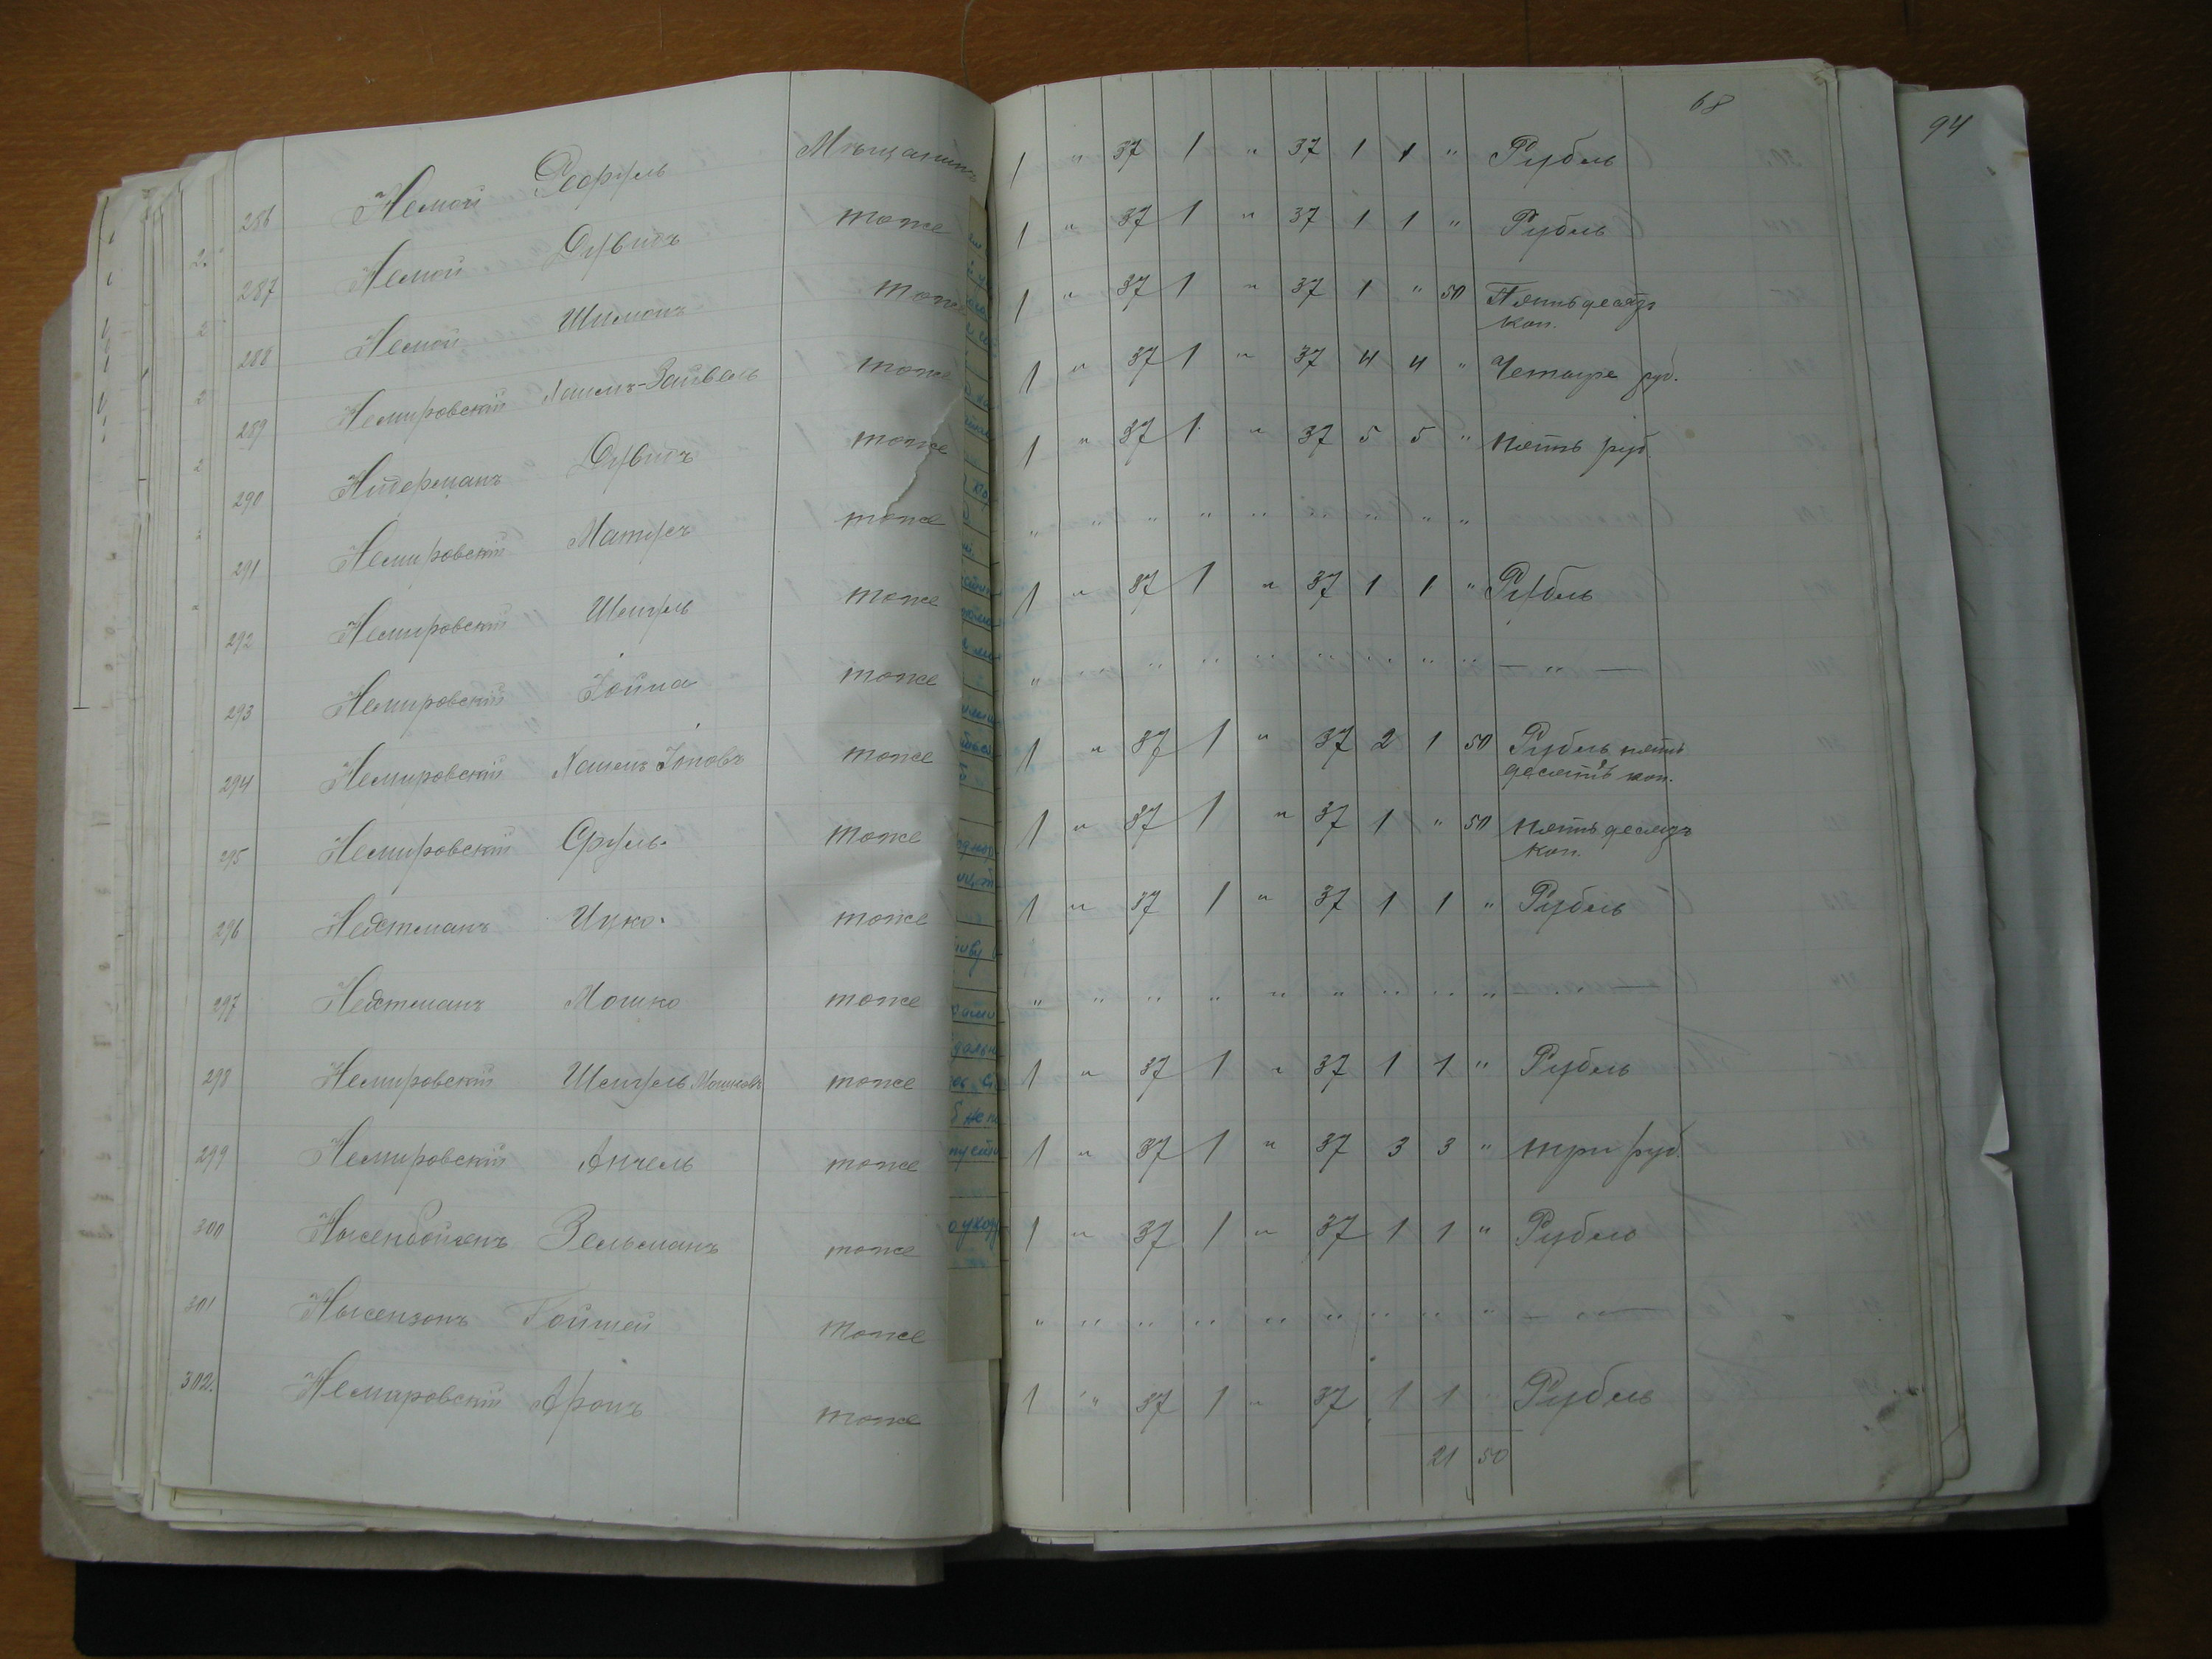 68
94
286 Немой Сруль Мѣщанинъ 1 " 37 1 " 37 1 1 " Рубль
287 Немой Дувидъ тоже 1 " 37 1 " 37 1 1 " Рубль
288 Немой Шимонъ тоже 1 " 37 1 " 37 1 " 50 Пятьдесятъ
коп.
289 Немировскій Хаимъ-Зайвель тоже 1 " 37 1 " 37 4 4 " Четыре руб.
290 Дувидъ тоже 1 " 37 1 " 37 5 5 " пять руб.
291 Немировскій Матусъ тоже " " " " " " " " "
292 Немировскій Шмуль тоже 1 " 37 1 " 37 1 1 " Рубль
293 Немировскій Іойна тоже " " " " " " " " " — " —
294 Немировскій Хаимъ тоже 1 " 37 1 " 37 2 1 50 Рубль пять
десятъ коп.
295 Немировскій Сруль тоже 1 " 37 1 " 37 1 " 50 пятьдесятъ
коп.
296 Ицко тоже 1 " 37 1 " 37 1 1 " Рубль
297 Мошко тоже " " " " " " " " "
298 Немировскій Шмуль Мошковъ тоже 1 " 37 1 " 37 1 1 " Рубль
299 Немировскій Анчель тоже 1 " 37 1 " 37 3 3 " три руб.
300 Зельманъ тоже 1 " 37 1 " 37 1 1 " Рубль
301 Нысензонъ тоже " " " " " " " " "
302. Немировскій Аронъ тоже 1 " 37 1 " 37 1 1 " Рубль
21 50